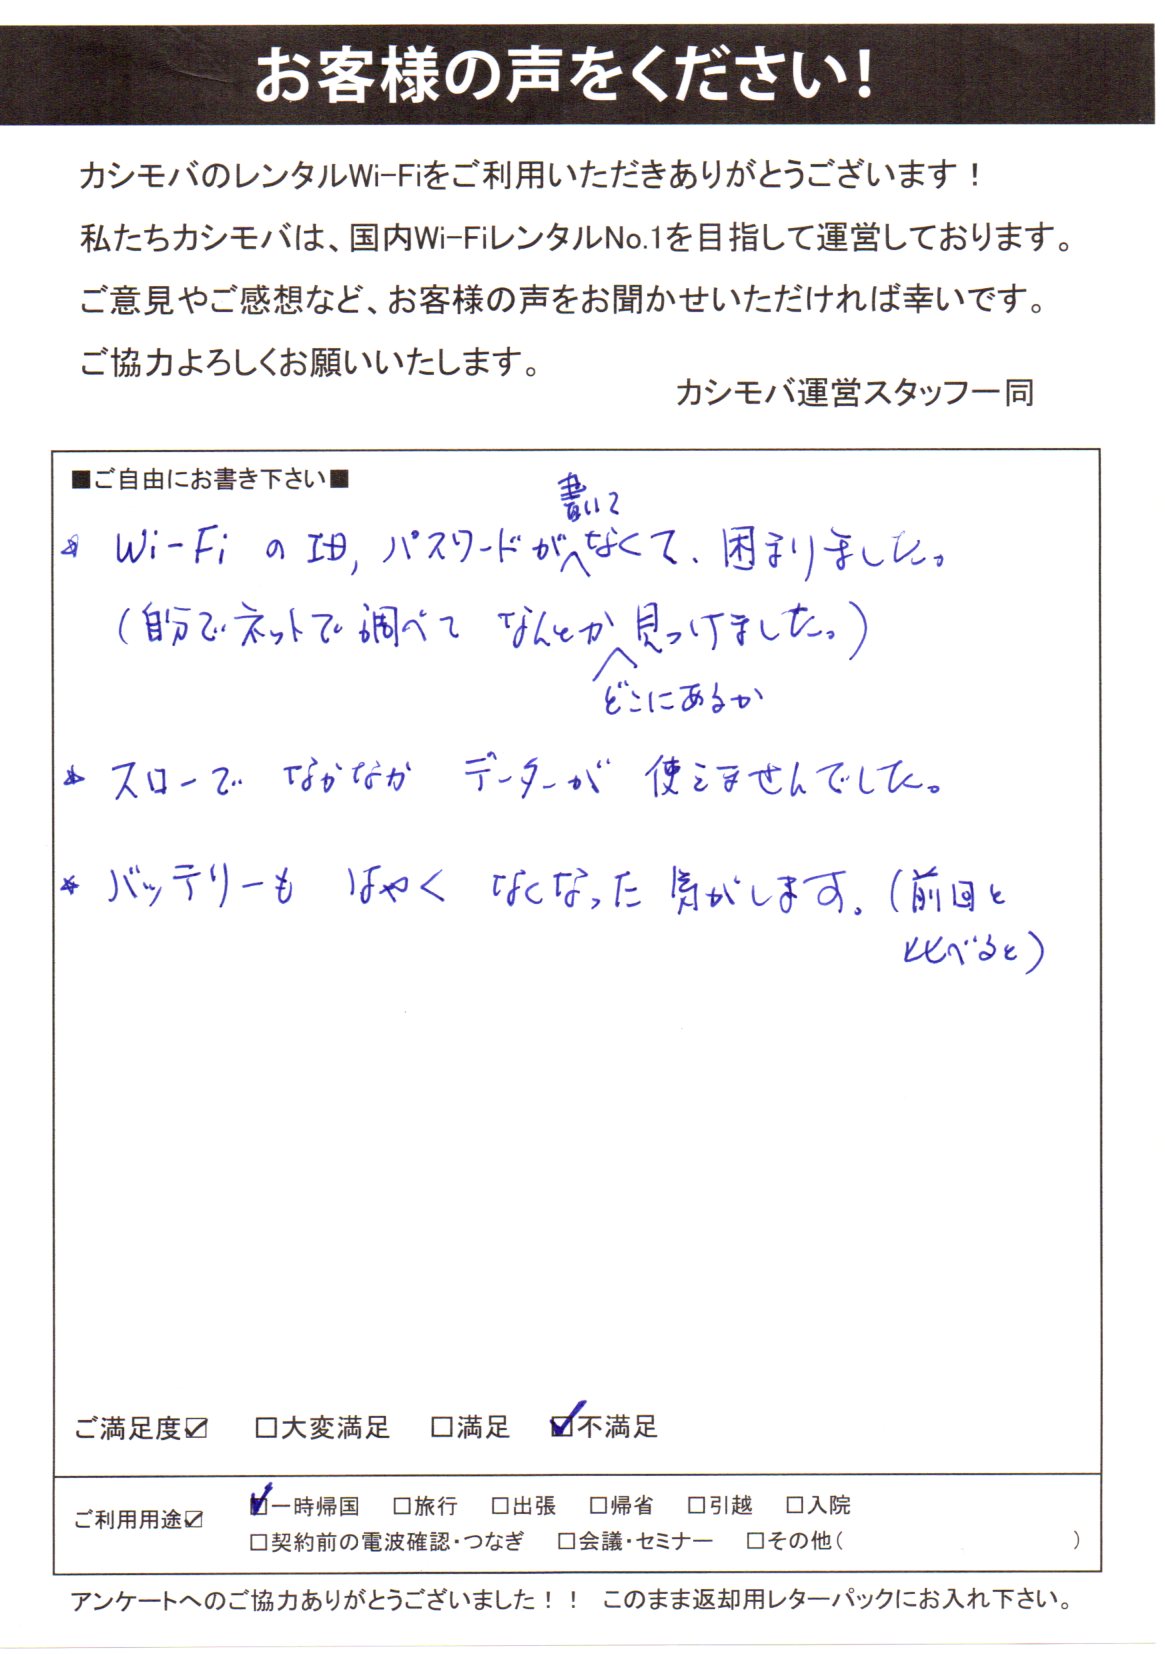 お客様の声をください！
カシモバのレンタルWi-Fiをご利用いただきありがとうございます！
私たちカシモバは、国内Wi-FiレンタルNo.1を目指して運営しております。
ご意見やご感想など、お客様の声をお聞かせいただければ幸いです。
ご協力よろしくお願いいたします。
カシモバ運営スタッフ一同
■ご自由にお書き下さい■
書いて
☆ Wi-Fi の ID, パスワードがなくて、困まりました。
(自分でネットで調べて なんとか見つけました。)
どこにあるか
☆ スローで なかなか データーが 使えませんでした。
☆ バッテリーも はやく なくなった 気がします。(前回と
比べると)
ご満足度☑ □大変満足 □満足 ☑不満足
ご利用用途☑ ☑一時帰国 □旅行 □出張 □帰省 □引越 □入院
□契約前の電波確認・つなぎ □会議・セミナー □その他( )
アンケートへのご協力ありがとうございました！！ このまま返却用レターパックにお入れ下さい。